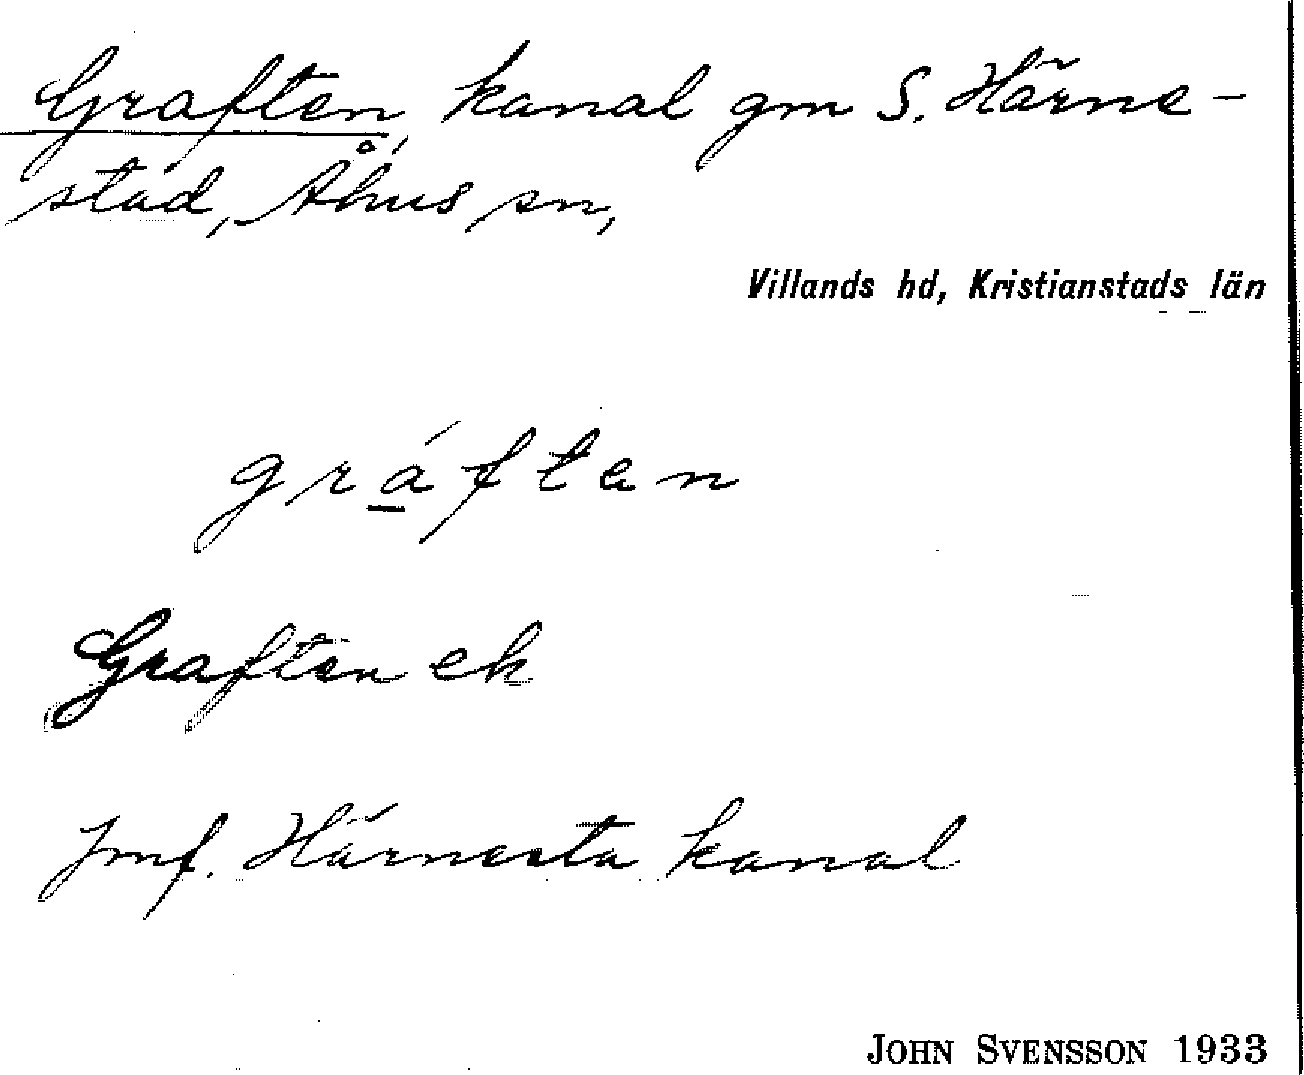 Graften, kanal gm S. Härne-
stad, Åhus sn,
Villands hd, Kristianstads län
gráften
Graften ek
Jmf. Härnesta kanal
JOHN SVENSSON 1933